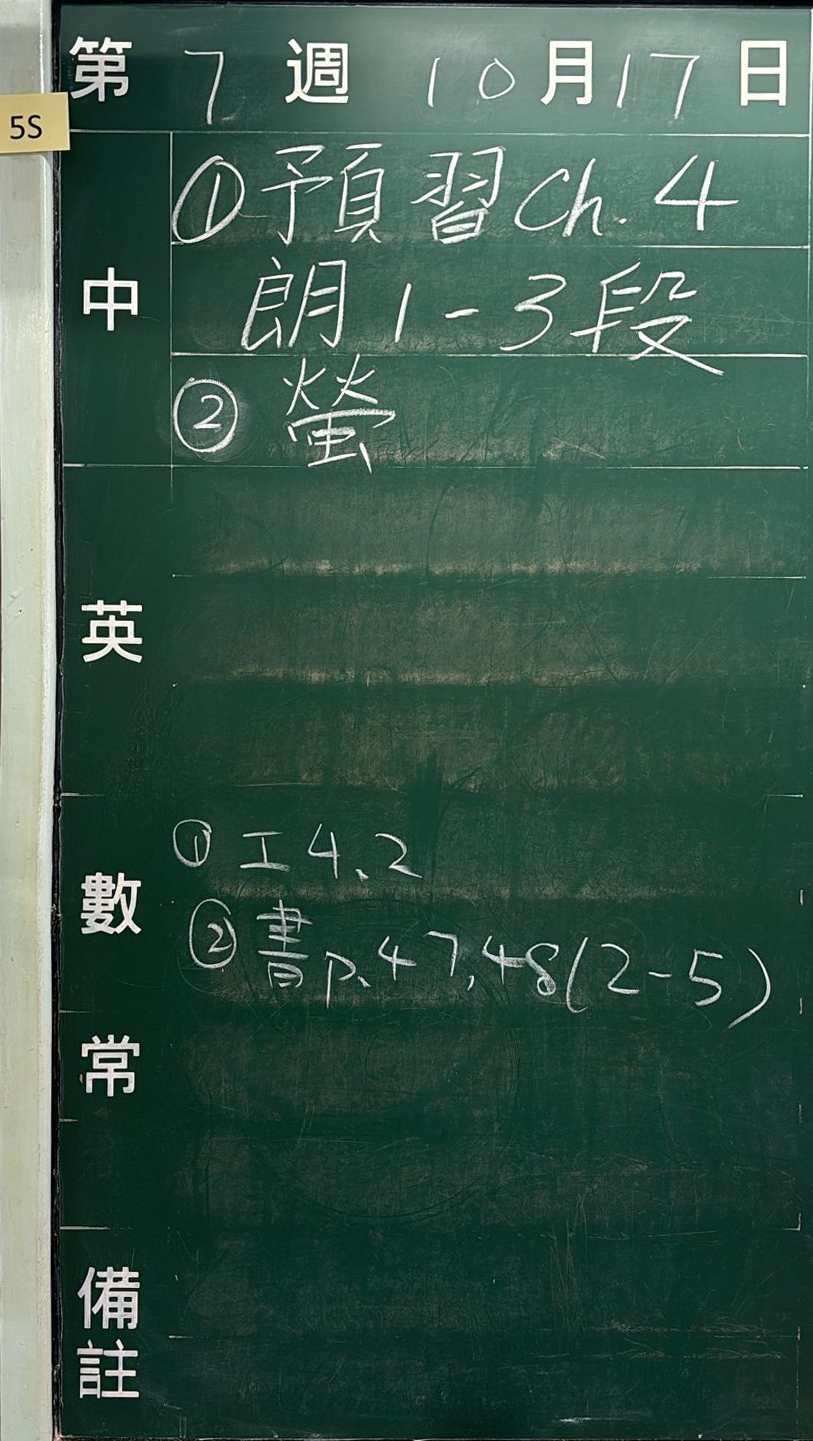 第 7 週 10 月 17 日
5S
中
①預習Ch.4
朗1-3段
② 螢
英
數
① 工4.2
② 書p.47,48(2-5)
常
備註